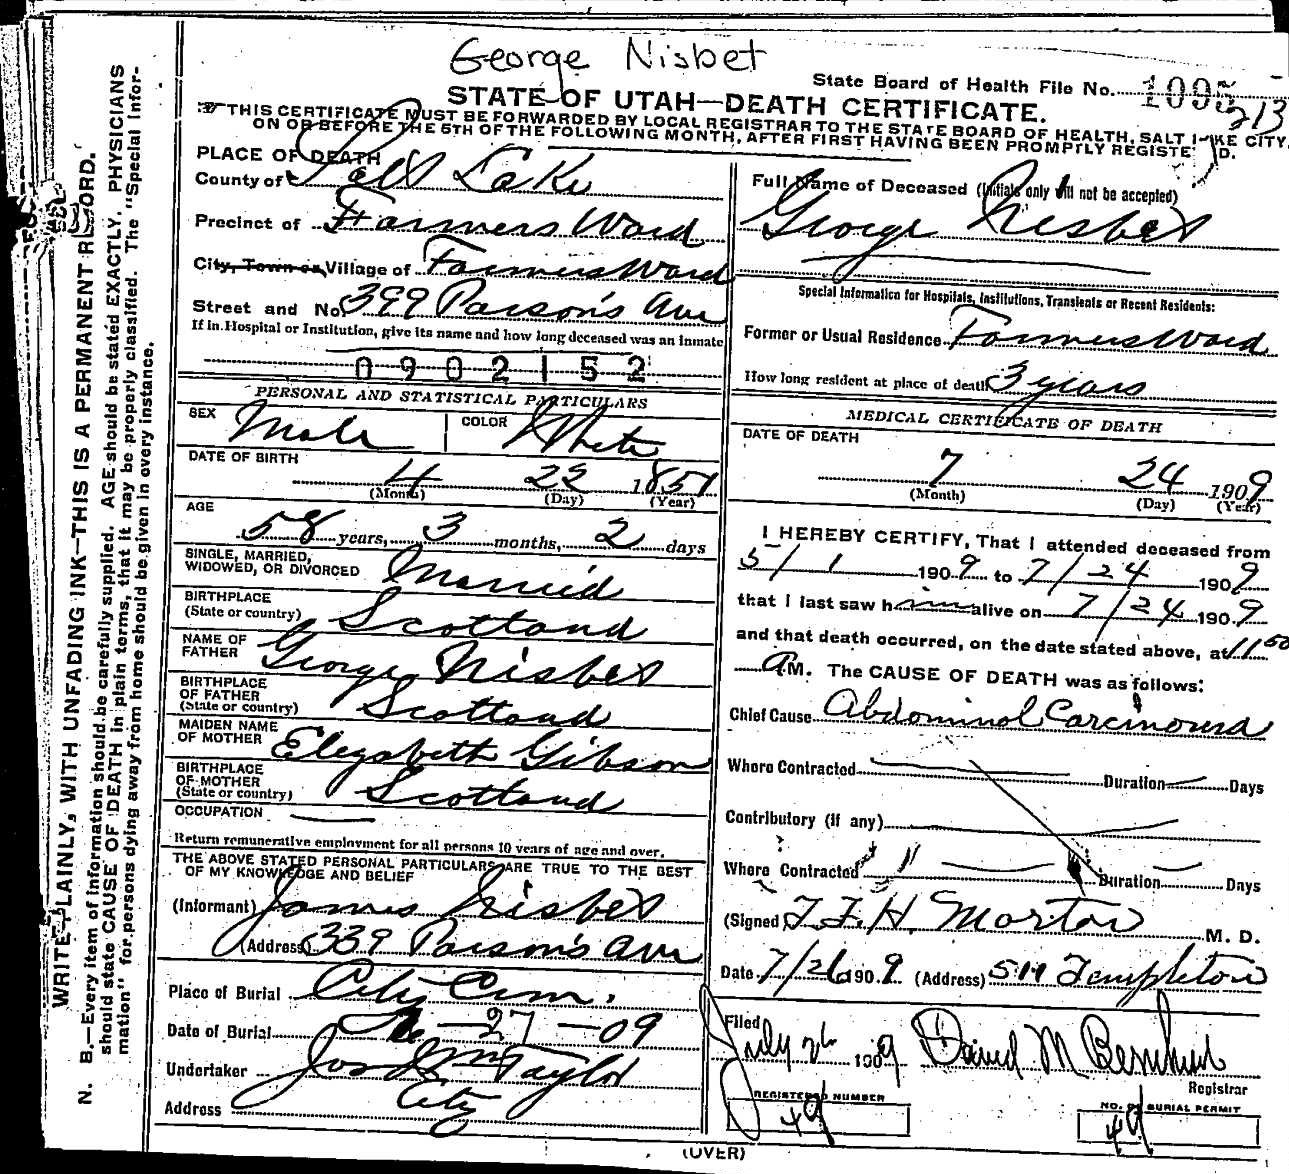 George Nisbet
State Board of Health File No. 1095
213
STATE OF UTAH—DEATH CERTIFICATE.
THIS CERTIFICATE MUST BE FORWARDED BY LOCAL REGISTRAR TO THE STATE BOARD OF HEALTH, SALT LAKE CITY,
ON OR BEFORE THE 5TH OF THE FOLLOWING MONTH, AFTER FIRST HAVING BEEN PROMPTLY REGISTE D.
WRITE PLAINLY, WITH UNFADING INK—THIS IS A PERMANENT RECORD.
N. B.—Every item of information should be carefully supplied. AGE should be stated EXACTLY. PHYSICIANS
should state CAUSE OF DEATH in plain terms, that it may be properly classified. The "Special Infor-
mation" for persons dying away from home should be given in every instance.
PLACE OF DEATH
County of Salt Lake
Precinct of Farmers Ward
City, Town or Village of Farmers Ward
Street and No. 399 Parson's Ave
If in Hospital or Institution, give its name and how long deceased was an inmate
0902152
PERSONAL AND STATISTICAL PARTICULARS
SEX Male COLOR White
DATE OF BIRTH
4 22 1851
(Month) (Day) (Year)
AGE
58 years, 3 months, 2 days
SINGLE, MARRIED,
WIDOWED, OR DIVORCED Married
BIRTHPLACE
(State or country) Scotland
NAME OF
FATHER George Nisbet
BIRTHPLACE
OF FATHER
(State or country) Scotland
MAIDEN NAME
OF MOTHER Elezabeth Gibson
BIRTHPLACE
OF MOTHER
(State or country) Scotland
OCCUPATION
Return remunerative employment for all persons 10 years of age and over.
THE ABOVE STATED PERSONAL PARTICULARS ARE TRUE TO THE BEST
OF MY KNOWLEDGE AND BELIEF
(Informant) James Nisbet
(Address) 339 Parson's Ave
Place of Burial City Cem.
Date of Burial 27-09
Undertaker Jos Wm Taylor
Address City
Full Name of Deceased (Initials only will not be accepted)
George Nisbet
Special Information for Hospitals, Institutions, Transients or Recent Residents:
Former or Usual Residence Farmers Ward
How long resident at place of death 3 years
MEDICAL CERTIFICATE OF DEATH
DATE OF DEATH
7 24 1909
(Month) (Day) (Year)
I HEREBY CERTIFY, That I attended deceased from
5/1 1909 to 7/24 1909
that I last saw him alive on 7/24 1909
and that death occurred, on the date stated above, at 11 50
a M. The CAUSE OF DEATH was as follows:
Chief Cause Abdominal Carcinoma
Where Contracted Duration Days
Contributory (if any)
Where Contracted Duration Days
(Signed T. F. H. Morton M. D.
Date 7/26 1909 (Address) 511 Templeton
Filed
July 26 1909 David M
Registrar
REGISTERED NUMBER
49
NO. OF BURIAL PERMIT
49
(OVER)